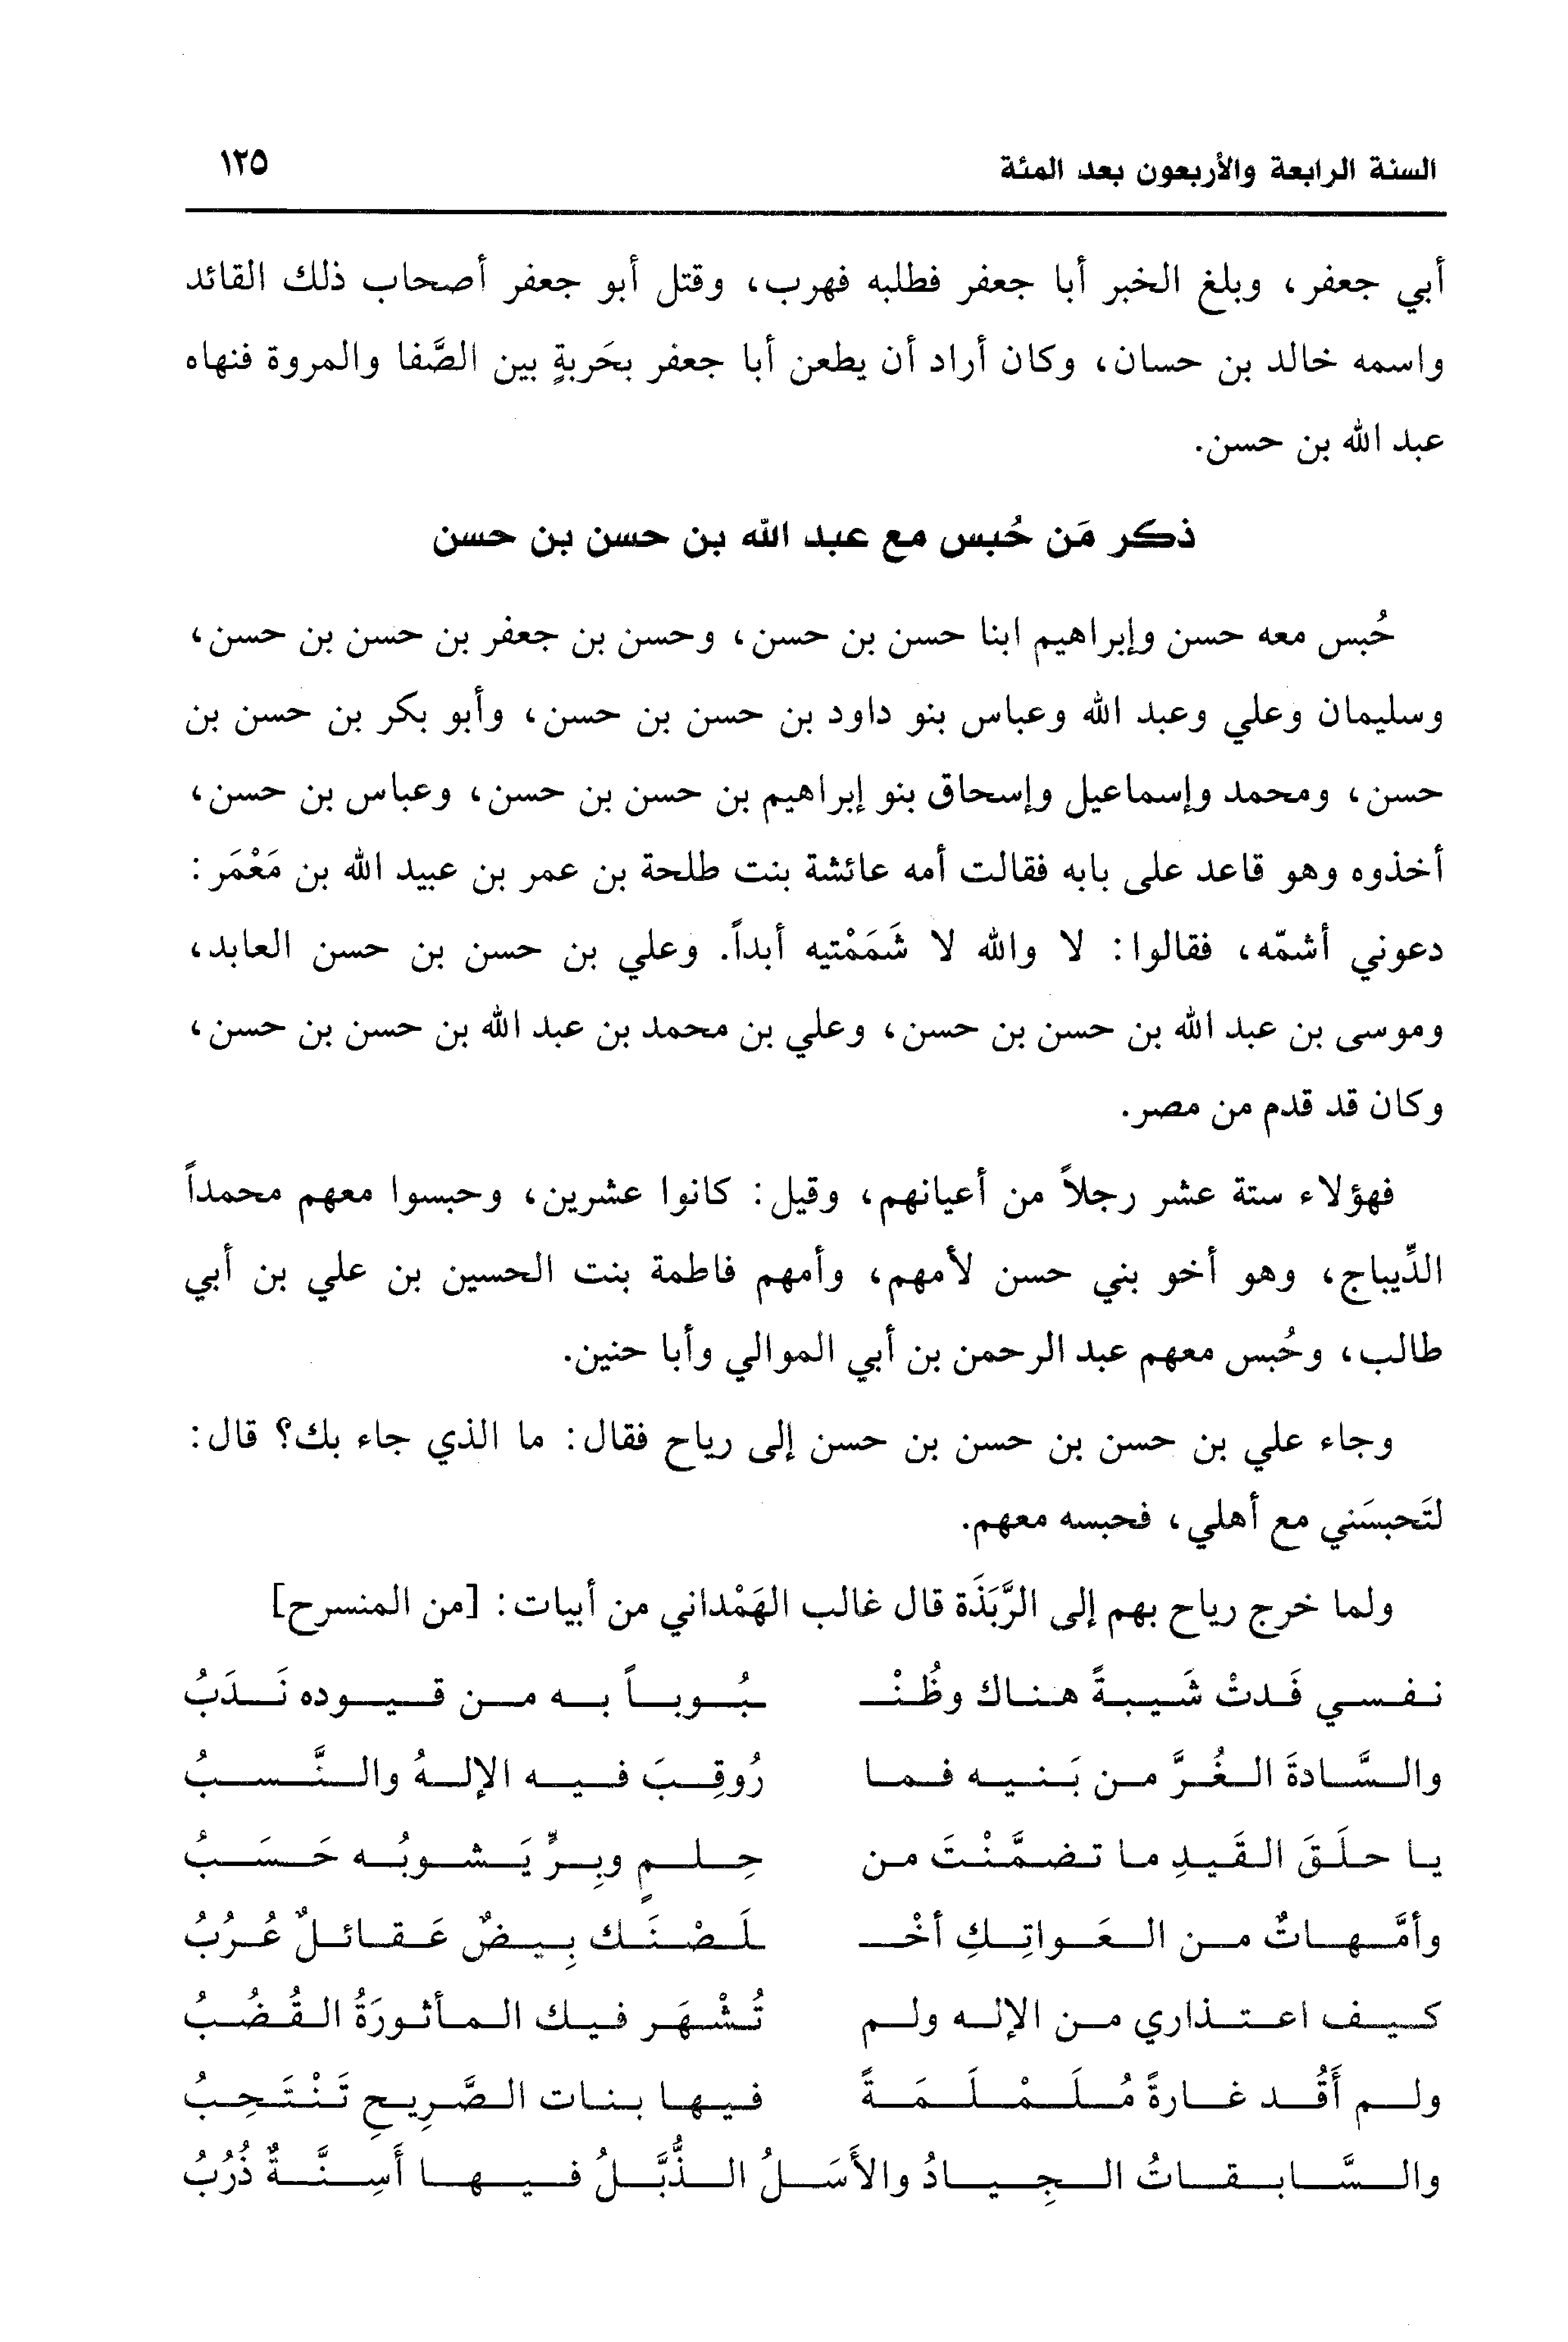 السنة الرابعة والأربعون بعد المئة ١٢٥
أبي جعفر، وبلغ الخبر أبا جعفر فطلبه فهرب، وقتل أبو جعفر أصحاب ذلك القائد
واسمه خالد بن حسان، وكان أراد أن يطعن أبا جعفر بحَربةٍ بين الصَّفا والمروة فنهاه
عبد الله بن حسن.
ذكر مَن حُبس مع عبد الله بن حسن بن حسن
حُبس معه حسن وإبراهيم ابنا حسن بن حسن، وحسن بن جعفر بن حسن بن حسن،
وسليمان وعلي وعبد الله وعباس بنو داود بن حسن بن حسن، وأبو بكر بن حسن بن
حسن، ومحمد وإسماعيل وإسحاق بنو إبراهيم بن حسن بن حسن، وعباس بن حسن،
أخذوه وهو قاعد على بابه فقالت أمه عائشة بنت طلحة بن عمر بن عبيد الله بن مَعْمَر:
دعوني أشمّه، فقالوا: لا والله لا شَمَمْتيه أبداً. وعلي بن حسن بن حسن العابد،
وموسى بن عبد الله بن حسن بن حسن، وعلي بن محمد بن عبد الله بن حسن بن حسن،
وكان قد قدم من مصر.
فهؤلاء ستة عشر رجلاً من أعيانهم، وقيل: كانوا عشرين، وحبسوا معهم محمداً
الدِّيباج، وهو أخو بني حسن لأمهم، وأمهم فاطمة بنت الحسين بن علي بن أبي
طالب، وحُبس معهم عبد الرحمن بن أبي الموالي وأبا حنين.
وجاء علي بن حسن بن حسن بن حسن إلى رياح فقال: ما الذي جاء بك؟ قال:
لتَحبسَني مع أهلي، فحبسه معهم.
ولما خرج رياح بهم إلى الرَّبَذَة قال غالب الهَمْداني من أبيات: [من المنسرح]
نفسي فَدتْ شَيبةً هناك وظُنْـ ـبُوباً به من قيوده نَدَبُ
والسَّادةَ الغُرَّ من بَنيه فما رُوقِبَ فيه الإلهُ والنَّسبُ
يا حلَقَ القَيدِ ما تضمَّنْتَ من حِلمٍ وبِرٍّ يَشوبُه حَسَبُ
وأمَّهاتٌ من العَواتِكِ أخْـ ـلَصْنَك بِيضٌ عَقائلٌ عُرُبُ
كيف اعتذاري من الإله ولم تُشْهَر فيك المأثورَةُ القُضُبُ
ولم أَقُد غارةً مُلَمْلَمَةً فيها بنات الصَّرِيحِ تَنْتَحِبُ
والسَّابقاتُ الجِيادُ والأَسَلُ الذُّبَّلُ فيها أَسِنَّةٌ ذُرُبُ